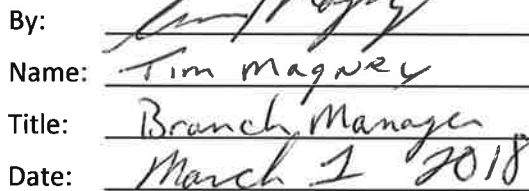 By:
Name: Tim Magney
Title: Branch Manager
Date: March 1 2018